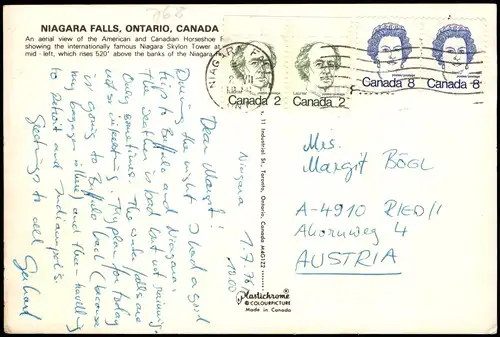 NIAGARA FALLS, ONTARIO, CANADA
An aerial view of the American and Canadian Horseshoe F
showing the internationally famous Niagara Skylon Tower at
mid - left, which rises 520' above the banks of the Niagara
NIAGARA FALLS
Canada 2
Canada 2
Canada 8
Canada 8
Niagara 1.7.76
10.00
Dear Margit!
During the night I had a good
trip to Buffalo and Niagara.
The weather is bad but not raining,
only sometimes. The water falls are
not so interesting. My plan for today
is going to Buffalo back (because
my baggage is there) and then travelling
to Detroit and Indianapolis.
Greetings to all
Gerhard
Mrs.
Margit BÖGL
A-4910 RIED/I
Ahornweg 4
AUSTRIA
s, 11 Industrial St., Toronto, Ontario, Canada M4G1Z2
Plastichrome®
COLOURPICTURE
Made in Canada